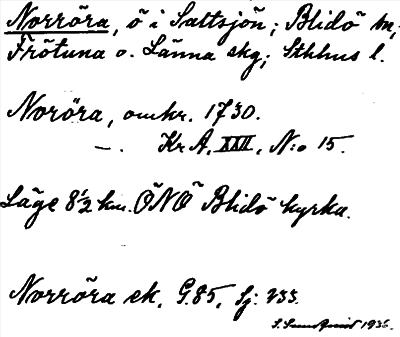 Norröra, ö i Saltsjön; Blidö sn,
Frötuna o. Länna skg; Sthlms l.
Noröra, omkr. 1730.
—. Kr A, XXII, N:o 15.
Läge 8 1/2 km. ÖNÖ Blidö kyrka.
Norröra ek. G.85, Sj: 233.
1936.